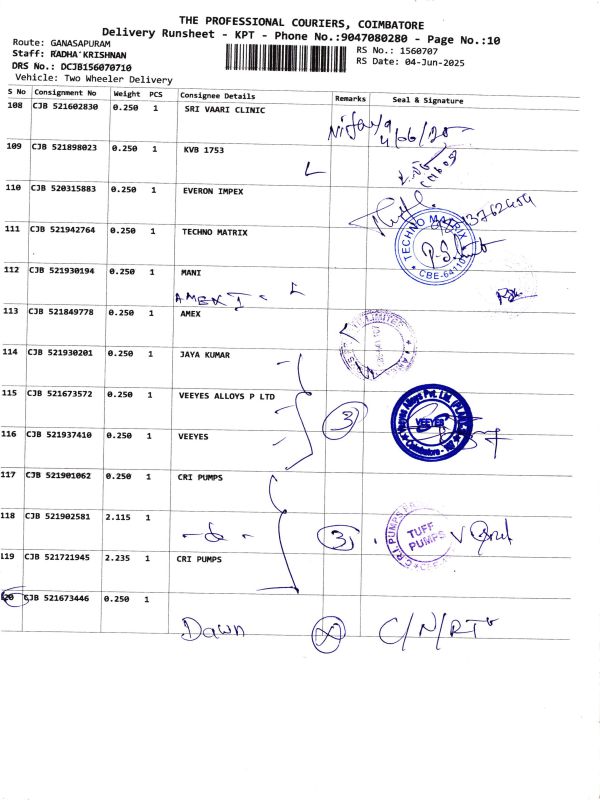 THE PROFESSIONAL COURIERS, COIMBATORE
Delivery Runsheet - KPT - Phone No.:9047080280 - Page No.:10
Route: GANASAPURAM
Staff: RADHA KRISHNAN
DRS No.: DCJB156070710
Vehicle: Two Wheeler Delivery
RS No.: 1560707
RS Date: 04-Jun-2025
S No Consignment No Weight PCS Consignee Details Remarks Seal & Signature
108 CJB 521602830 0.250 1 SRI VAARI CLINIC
109 CJB 521898023 0.250 1 KVB 1753
110 CJB 520315883 0.250 1 EVERON IMPEX
111 CJB 521942764 0.250 1 TECHNO MATRIX
TECHNO MATRIX
112 CJB 521930194 0.250 1 MANI
AMEX I
113 CJB 521849778 0.250 1 AMEX
114 CJB 521930201 0.250 1 JAYA KUMAR
115 CJB 521673572 0.250 1 VEEYES ALLOYS P LTD
3)
VEEYES
116 CJB 521937410 0.250 1 VEEYES
117 CJB 521901062 0.250 1 CRI PUMPS
118 CJB 521902581 2.115 1 -do-
3)
C.R.I. PUMPS
TUFF
PUMPS
119 CJB 521721945 2.235 1 CRI PUMPS
120 CJB 521673446 0.250 1
Dawn C/N/RTO